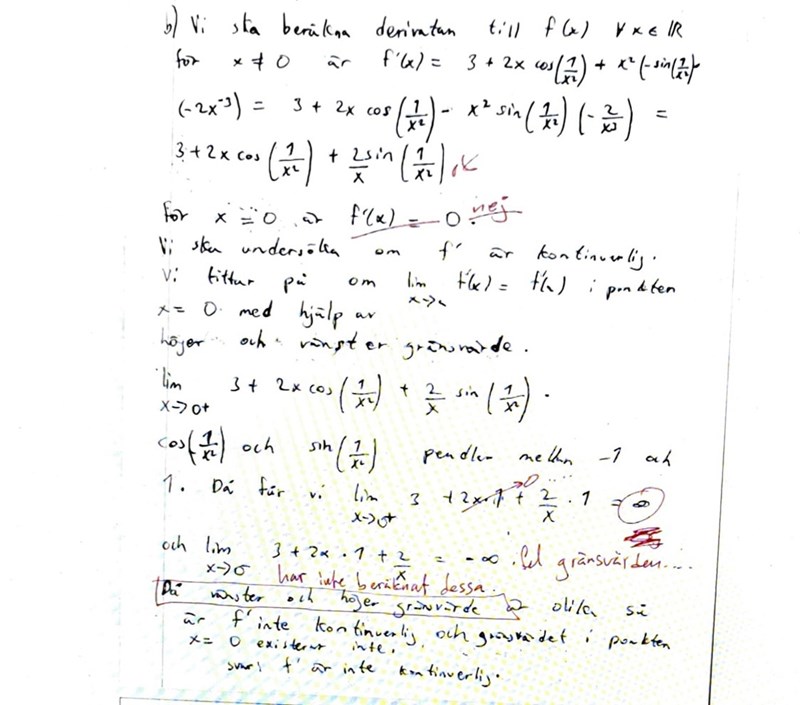 b) Vi ska beräkna derivatan till f(x) ∀ x ∈ ℝ
för x ≠ 0 är f'(x) = 3 + 2x cos(1/x²) + x²(-sin(1/x²)·
(-2x⁻³) = 3 + 2x cos(1/x²) - x² sin(1/x²)(-2/x³) =
3 + 2x cos(1/x²) + 2sin/x (1/x²).
för x = 0 är f'(x) = 0. nej
Vi ska undersöka om f' är kontinuerlig.
Vi tittar på om lim x→a f'(x) = f'(a) i punkten
x = 0 med hjälp av
höger och vänster gränsvärde.
lim x→0+ 3 + 2x cos(1/x²) + 2/x sin(1/x²).
cos(1/x²) och sin(1/x²) pendlar mellan -1 och
1. Då får vi lim x→0+ 3 + 2x·1 → 0 + 2/x · 1 = ∞
och lim x→0- 3 + 2x · 1 + 2/x = -∞. Fel gränsvärden....
har inte beräknat dessa.
Då vänster och höger gränsvärde är olika så
är f' inte kontinuerlig och gränsvärdet i punkten
x = 0 existerar inte.
svar: f' är inte kontinuerlig.